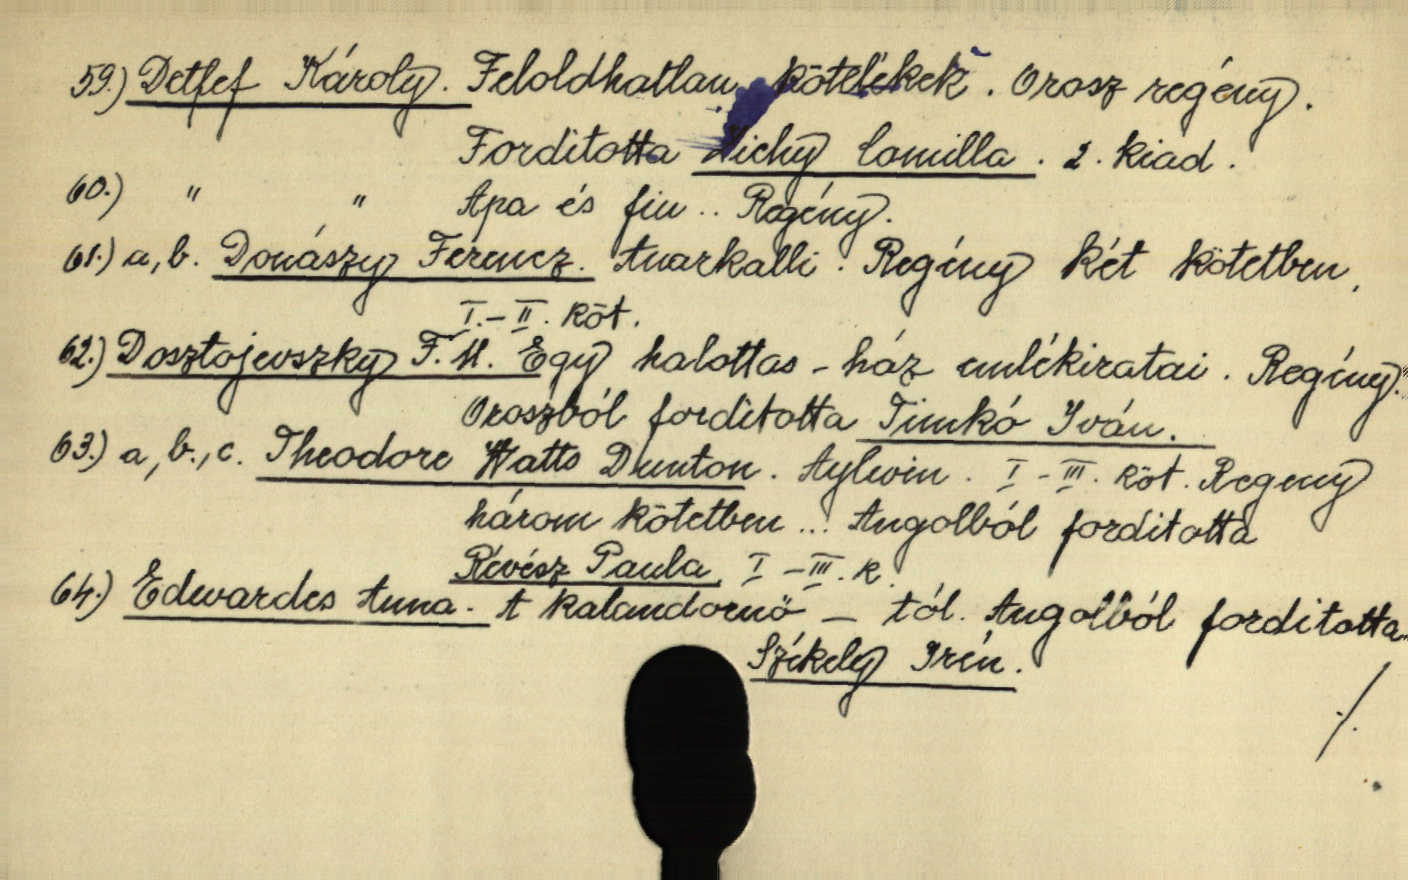 59.) Detlef Károly. Feloldhatlan kötelékek. Orosz regény.
Forditotta Zichy Camilla. 2. kiad.
60.) " " Apa és fiu.. Regény.
61.) a, b. Donászy Ferencz. Anarkalli. Regény két kötetben,
I.-II. köt.
62.) Dosztojevszky F. M. Egy halottas-ház emlékiratai. Regény.
Oroszból forditotta Timkó Iván.
63.) a, b., c. Theodore Watts Dunton. Aylwin. I-III. köt. Regeny
három kötetben... Angolból forditotta
Révész Paula. I-III. k.
64.) Edwardes Anna. A kalandornö - tól. Angolból forditotta
Székely Irén.
./.